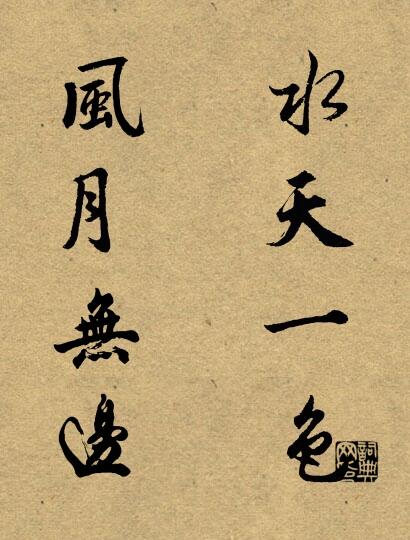 水天一色
風月無邊
詞典網